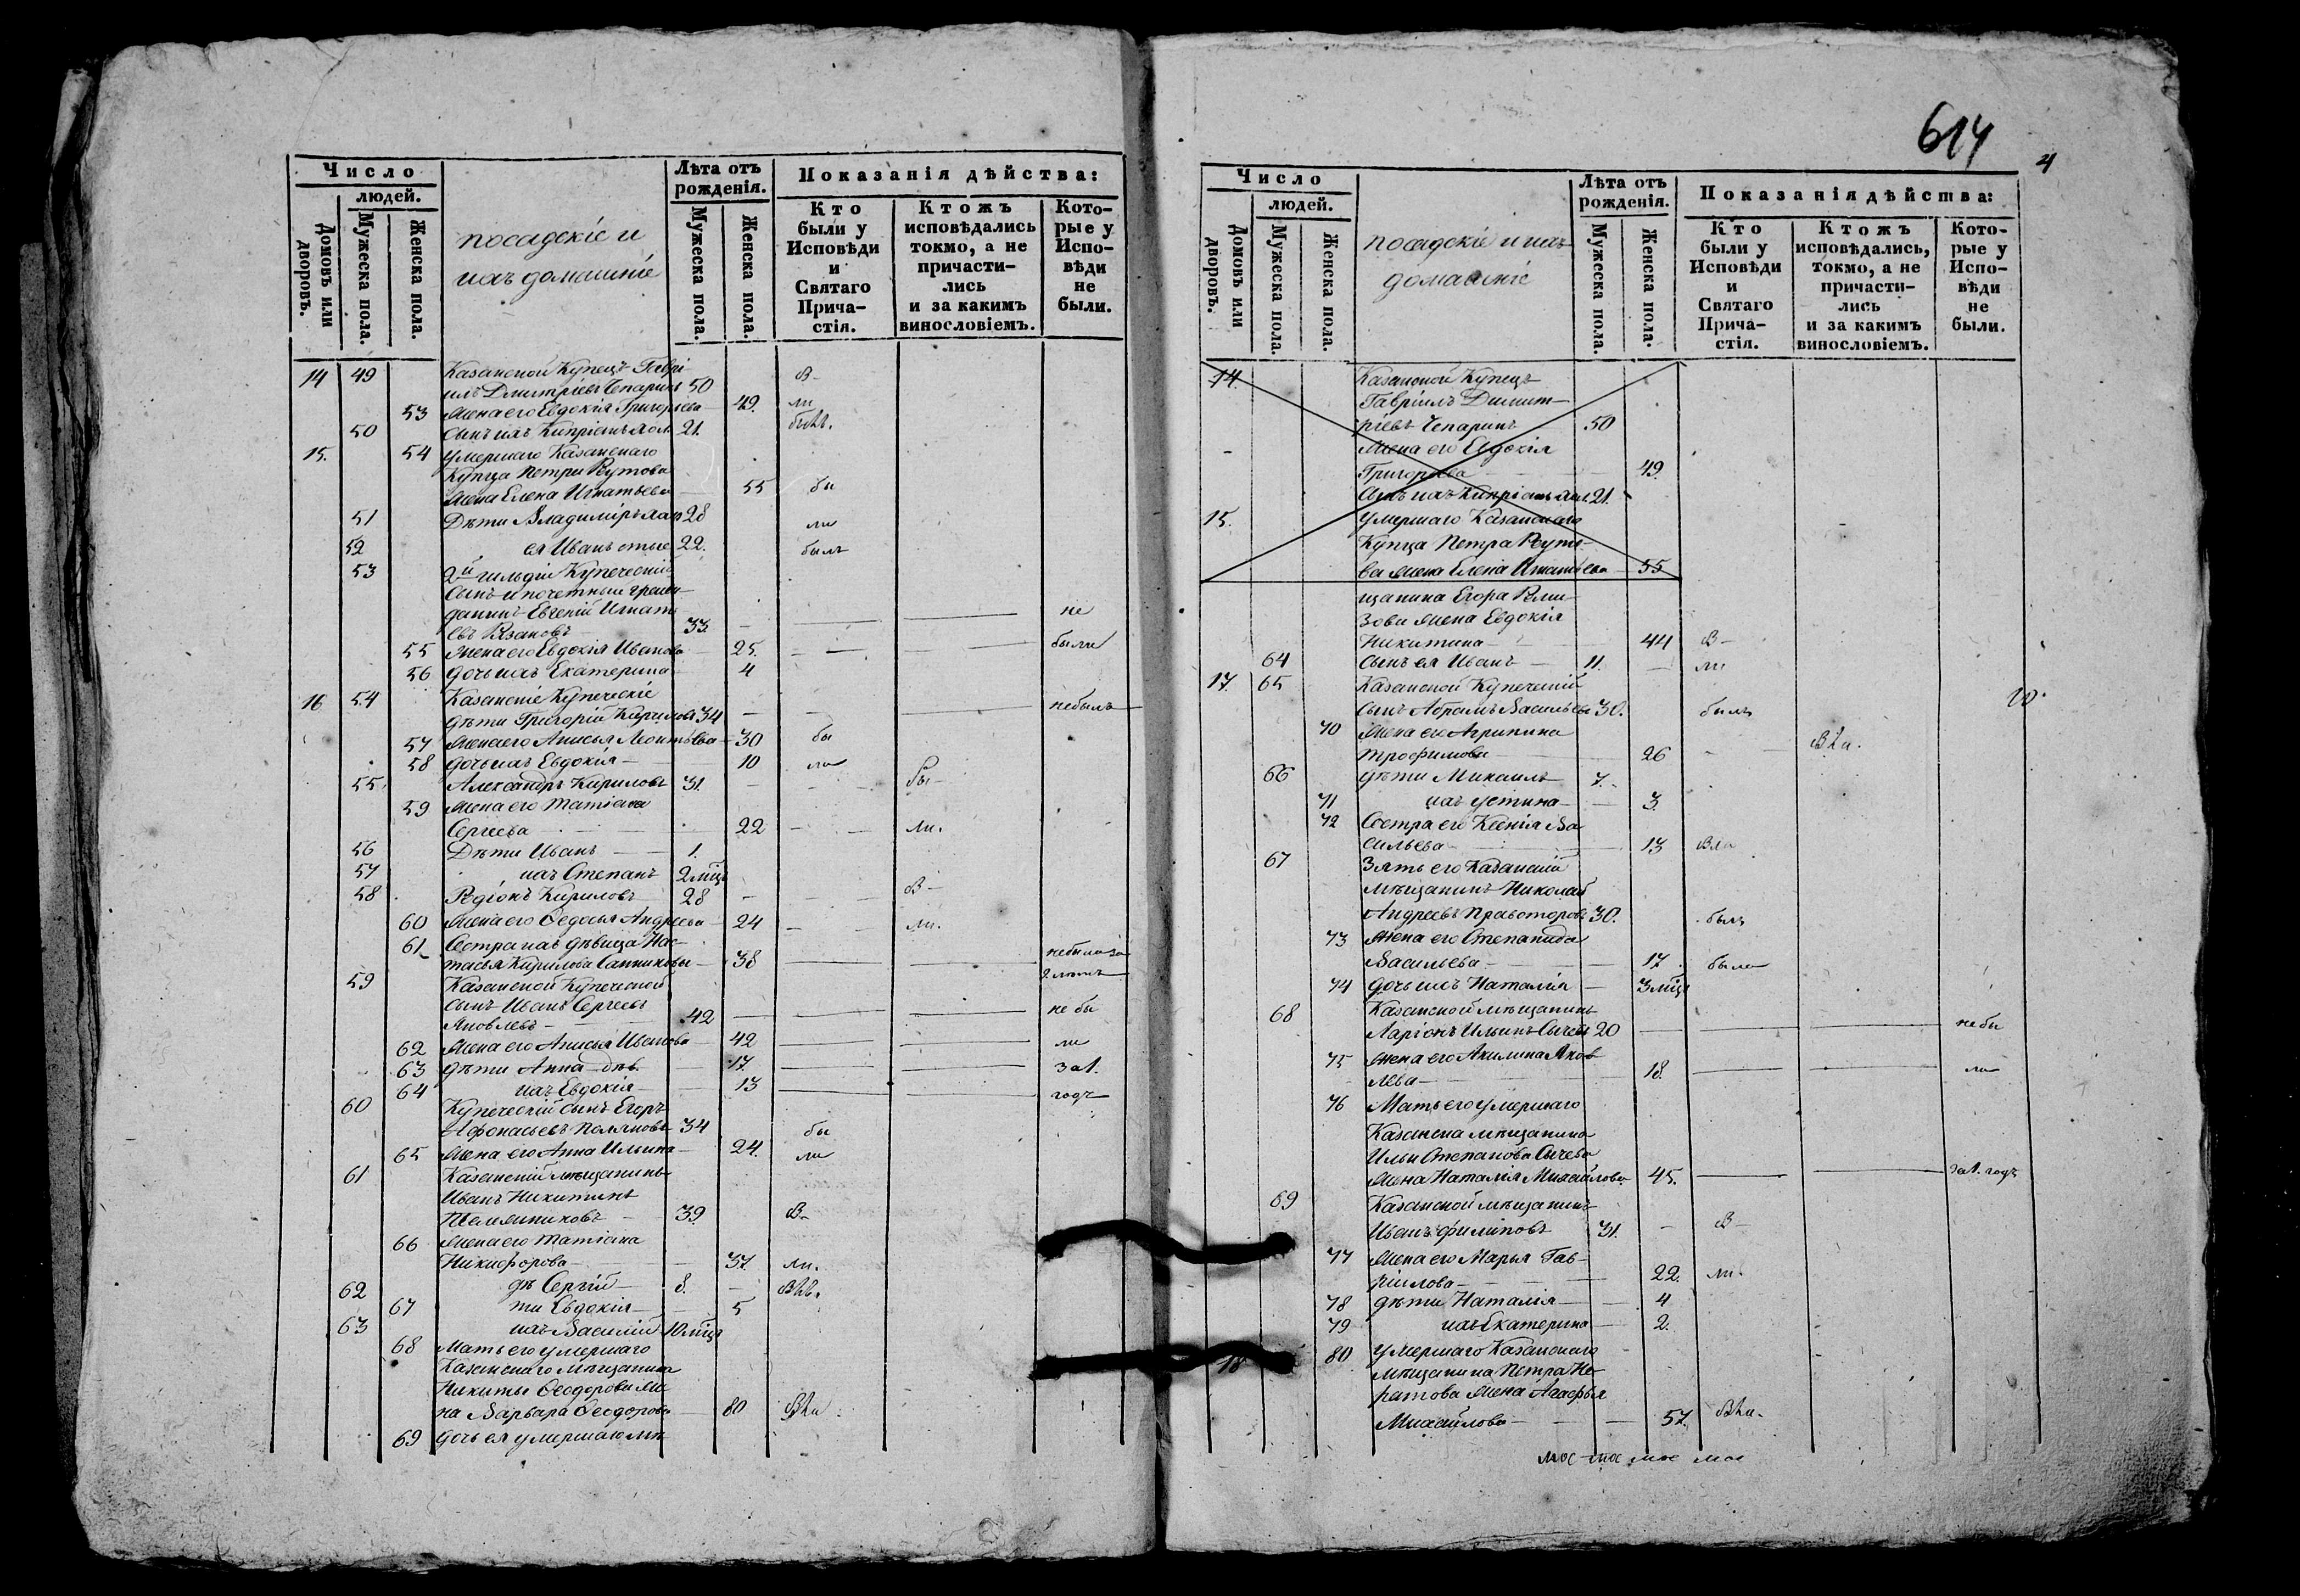 Число
людей.
Домовъ или дворовъ.
Мужеска пола.
Женска пола.
посадскіе и
ихъ домашніе
Лѣта отъ
рожденія.
Мужеска пола.
Женска пола.
Показанія дѣйства:
Кто
были у
Исповѣди
и
Святаго
Прича-
стія.
Ктожъ
исповѣдались
токмо, а не
причасти-
лись
и за какимъ
винословіемъ.
Кото-
рые у
Испо-
вѣди
не
были.
14 49 Казанской Купецъ Гаврі
илъ Дмитріевъ Чепаринъ 50 в-
53 Жена его Евдокія Григорьева 49. ли
50 Сынъ ихъ Кипріанъ хол. 21.
15. 54 Умершаго Казанскаго
Купца Петра Реутова
жена Елена Игнатьева 55 бы
51 Дѣти Владиміръ хол 28 ли
52 ея Иванъ 22. былъ
53 2й гильдіи Купеческій
сынъ и почетный граж-
данинъ Евгеній Игнать
евъ Рязановъ 33. не
55 Жена его Евдокія Иванова 25. были
56 дочь ихъ Екатерина 4
16 54 Казанскіе Купеческіе
дѣти Григорій Кириловъ 34 небылъ
57 Жена его Анисья Леонтьева 30 бы
58 дочь ихъ Евдокія 10 ли
55 Александръ Кириловъ 31. бы-
59 Жена его Татіана
Сергеева 22 ли.
56 Дѣти Иванъ 1.
57 ихъ Степанъ 2 мѣц
58 Родіонъ Кириловъ 28 в-
60 Жена его Федосья Андреева 24 ли.
61 Сестра ихъ дѣвица Нас-
тасья Кирилова Санникова 38 небыла за
2 лѣтъ
59 Казанской Купеческой
сынъ Иванъ Сергеевъ
Яковлевъ 42 не бы
62 Жена его Анисья Иванова 42 ли
63 дѣти Анна дѣв. 17. за 1.
64 ихъ Евдокія 13 годъ
60 Купеческій сынъ Егоръ
Афонасьевъ Поляковъ 34 бы
65 Жена его Анна Ильина 24. ли
61 Казанскій мѣщанинъ
Иванъ Никитинъ
39. в-
66 Жена его Татіана
Никифорова 37. ли.
62 дѣ Сергій 8.
67 ти Евдокія 5
63 ихъ Василій 10 мѣц
68 Мать его умершаго
Казанскаго мѣщанина
Никиты Феодорова же
на Варвара Феодорова 80
69 Дочь ея умершаго мѣ
614
4
Число
людей.
Домовъ или дворовъ.
Мужеска пола.
Женска пола.
посадскіе и ихъ
домашніе
Лѣта отъ
рожденія.
Мужеска пола.
Женска пола.
Показанія дѣйства:
Кто
были у
Исповѣди
и
Святаго
Прича-
стія.
Ктожъ
исповѣдались,
токмо, а не
причасти-
лись
и за какимъ
винословіемъ.
Кото-
рые у
Испо-
вѣди
не
были.
14. Казанской Купецъ
Гавріилъ Димит-
ріевъ Чепаринъ 50
Жена его Евдокія
Григорьева 49.
Сынъ ихъ Кипріанъ хол 21.
15. Умершаго Казанскаго
Купца Петра Реуто-
ва жена Елена Игнатьева 55
щанина Егора
зова жена Евдокія
Никитина 44 в-
64 Сынъ ея Иванъ 11. ли
17. 65 Казанской Купеческій
сынъ Абрамъ Васильевъ 30. былъ
70 Жена его Агрипина
Трофимова 26
66 Дѣти Михаилъ 7.
71 ихъ Устина 3.
72 Сестра его Ксенія Ва
сильева 13
67 Зять его Казанскій
мѣщанинъ Николай
Андреевъ 30. былъ
73 Жена его Степанида
Васильева 17. была
74 дочь ихъ Наталія 3 мѣц
68 Казанской мѣщанинъ
Ларіонъ Ильинъ Сычевъ 20 не бы
75 Жена его Акилина Яков
лева 18. ли
76 Мать его умершаго
Казанска мѣщанина
Ильи Степанова Сычева
жена Наталія Михайлова 45. за 1. годъ
69 Казанской мѣщанинъ
Иванъ Филиповъ 31. в-
77 Жена его Марья Гав-
ріилова 22. ли.
78 дѣти Наталія 4
79 ихъ Екатерина 2.
18 80 Умершаго Казанскаго
мѣщанина Петра Не-
ратова жена Агафья
Михайлова 57.